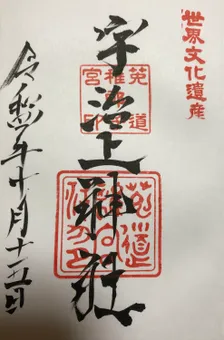 世界文化遺産
宇治上神社
菟道稚郎
令和元年十月十五日